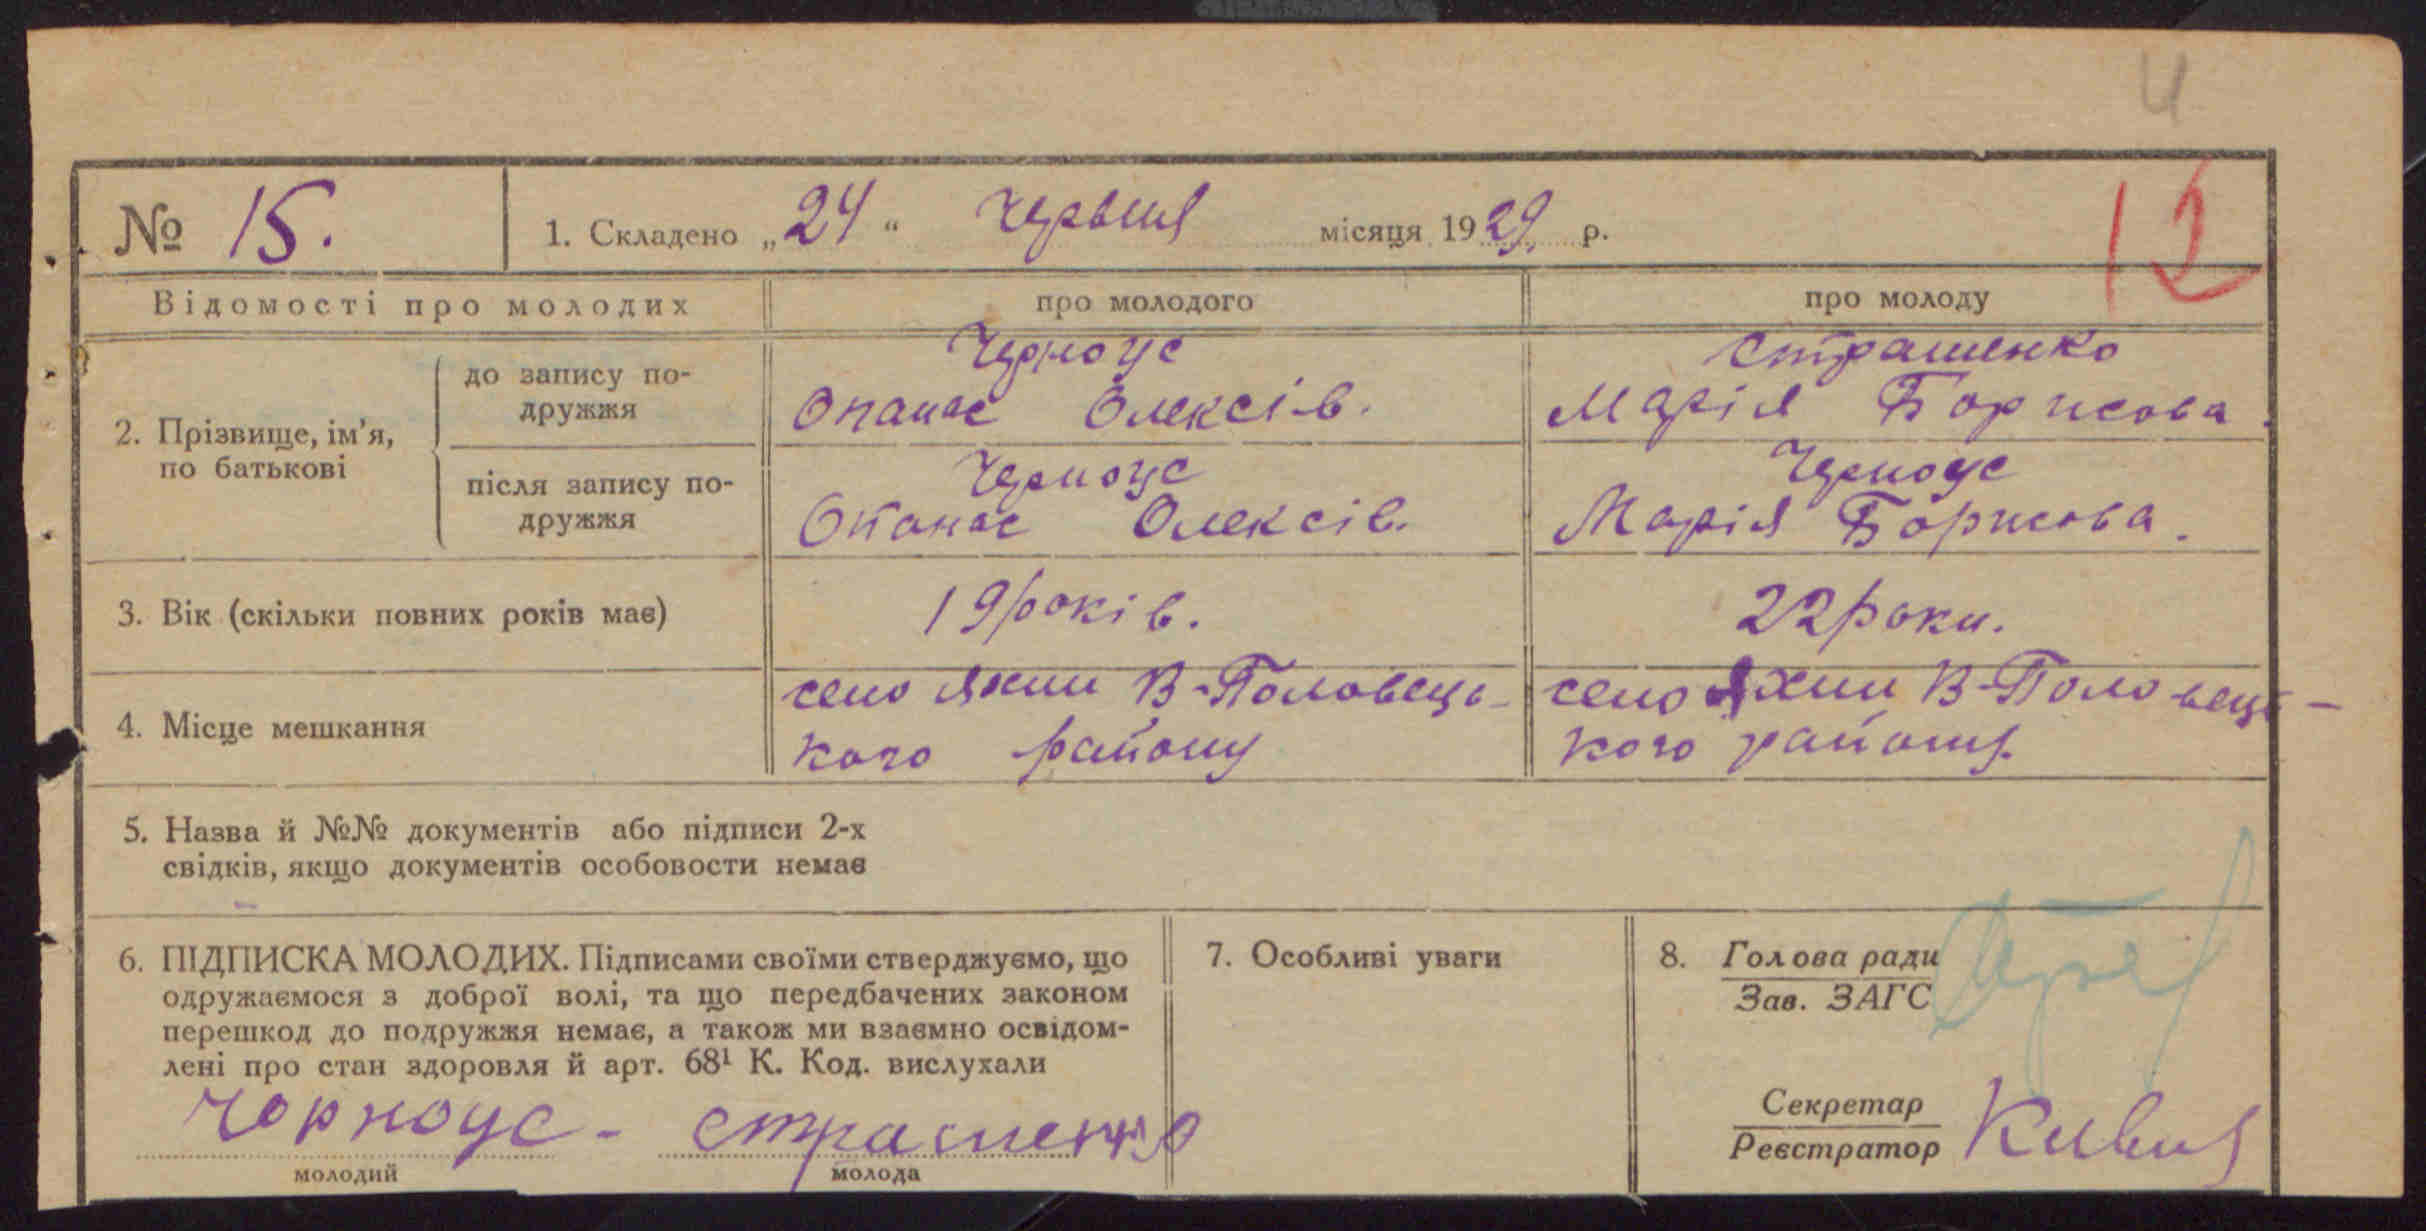 И
12
№ 15. 1. Складено „24“ Червня місяця 1929. р.
Відомості про молодих про молодого про молоду
2. Прізвище, ім’я, по батькові
до запису по-
дружжя
Черноус
Опанас Олексів.
Страшенко
Марія Борисова.
після запису по-
дружжя
Черноус
Опанас Олексів.
Черноус
Марія Борисова.
3. Вік (скільки повних років має) 19 років. 22 роки.
4. Місце мешкання
село Яхни В-Половець-
кого району
село Яхни В-Половець-
кого району.
5. Назва й №№ документів або підписи 2-х
свідків, якщо документів особовости немає
6. ПІДПИСКА МОЛОДИХ. Підписами своїми стверджуємо, що
одружаємося з доброї волі, та що передбачених законом
перешкод до подружжя немає, а також ми взаємно освідом-
лені про стан здоровля й арт. 68¹ К. Код. вислухали
Чорноус - страшенко
молодий молода
7. Особливі уваги
8. Голова ради
Зав. ЗАГС
Секретар
Реєстратор